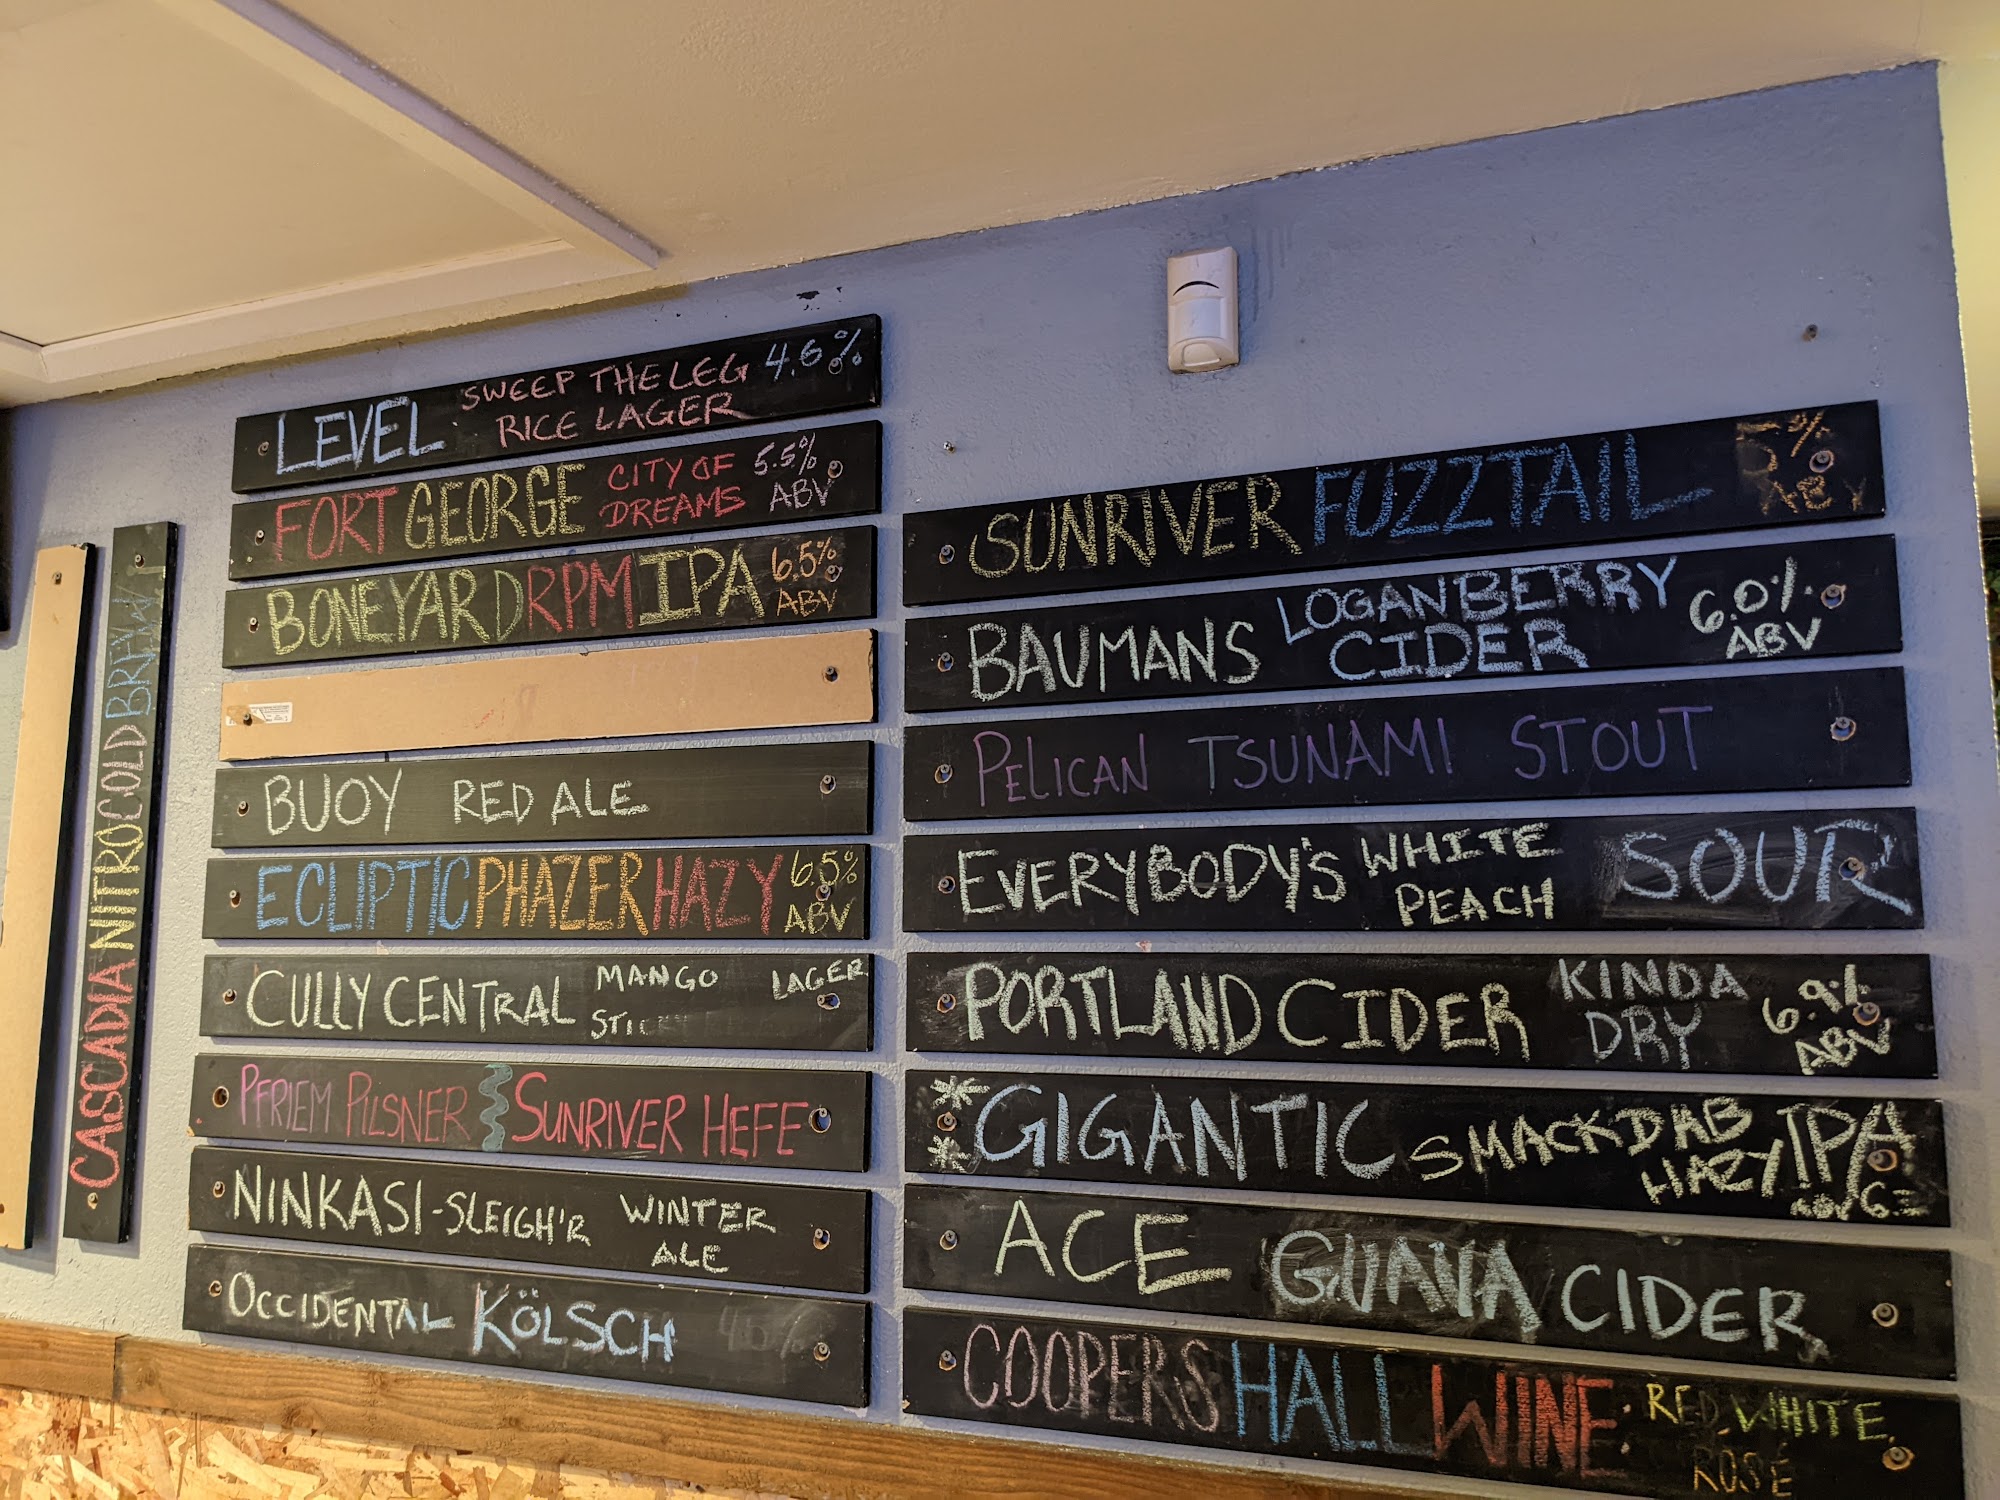 CASCADIA NITRO COLD BREW
LEVEL SWEEP THE LEG 4.6%
RICE LAGER
FORT GEORGE CITY OF 5.5%
DREAMS ABV
BONEYARD RPM IPA 6.5%
ABV
BUOY RED ALE
ECLIPTIC PHAZER HAZY 6.5%
ABV
CULLY CENTRAL MANGO LAGER
PFRIEM PILSNER SUNRIVER HEFE
NINKASI - SLEIGH'R WINTER
ALE
OCCIDENTAL KÖLSCH
SUNRIVER FUZZTAIL 5%
ABV
BAUMANS LOGANBERRY 6.0%
CIDER ABV
PELICAN TSUNAMI STOUT
EVERYBODY'S WHITE SOUR
PEACH
PORTLAND CIDER KINDA 6.9%
DRY ABV
GIGANTIC SMACKDAB IPA
HAZY ABV
ACE GUAVA CIDER
COOPERS HALL WINE RED, WHITE,
ROSÉ